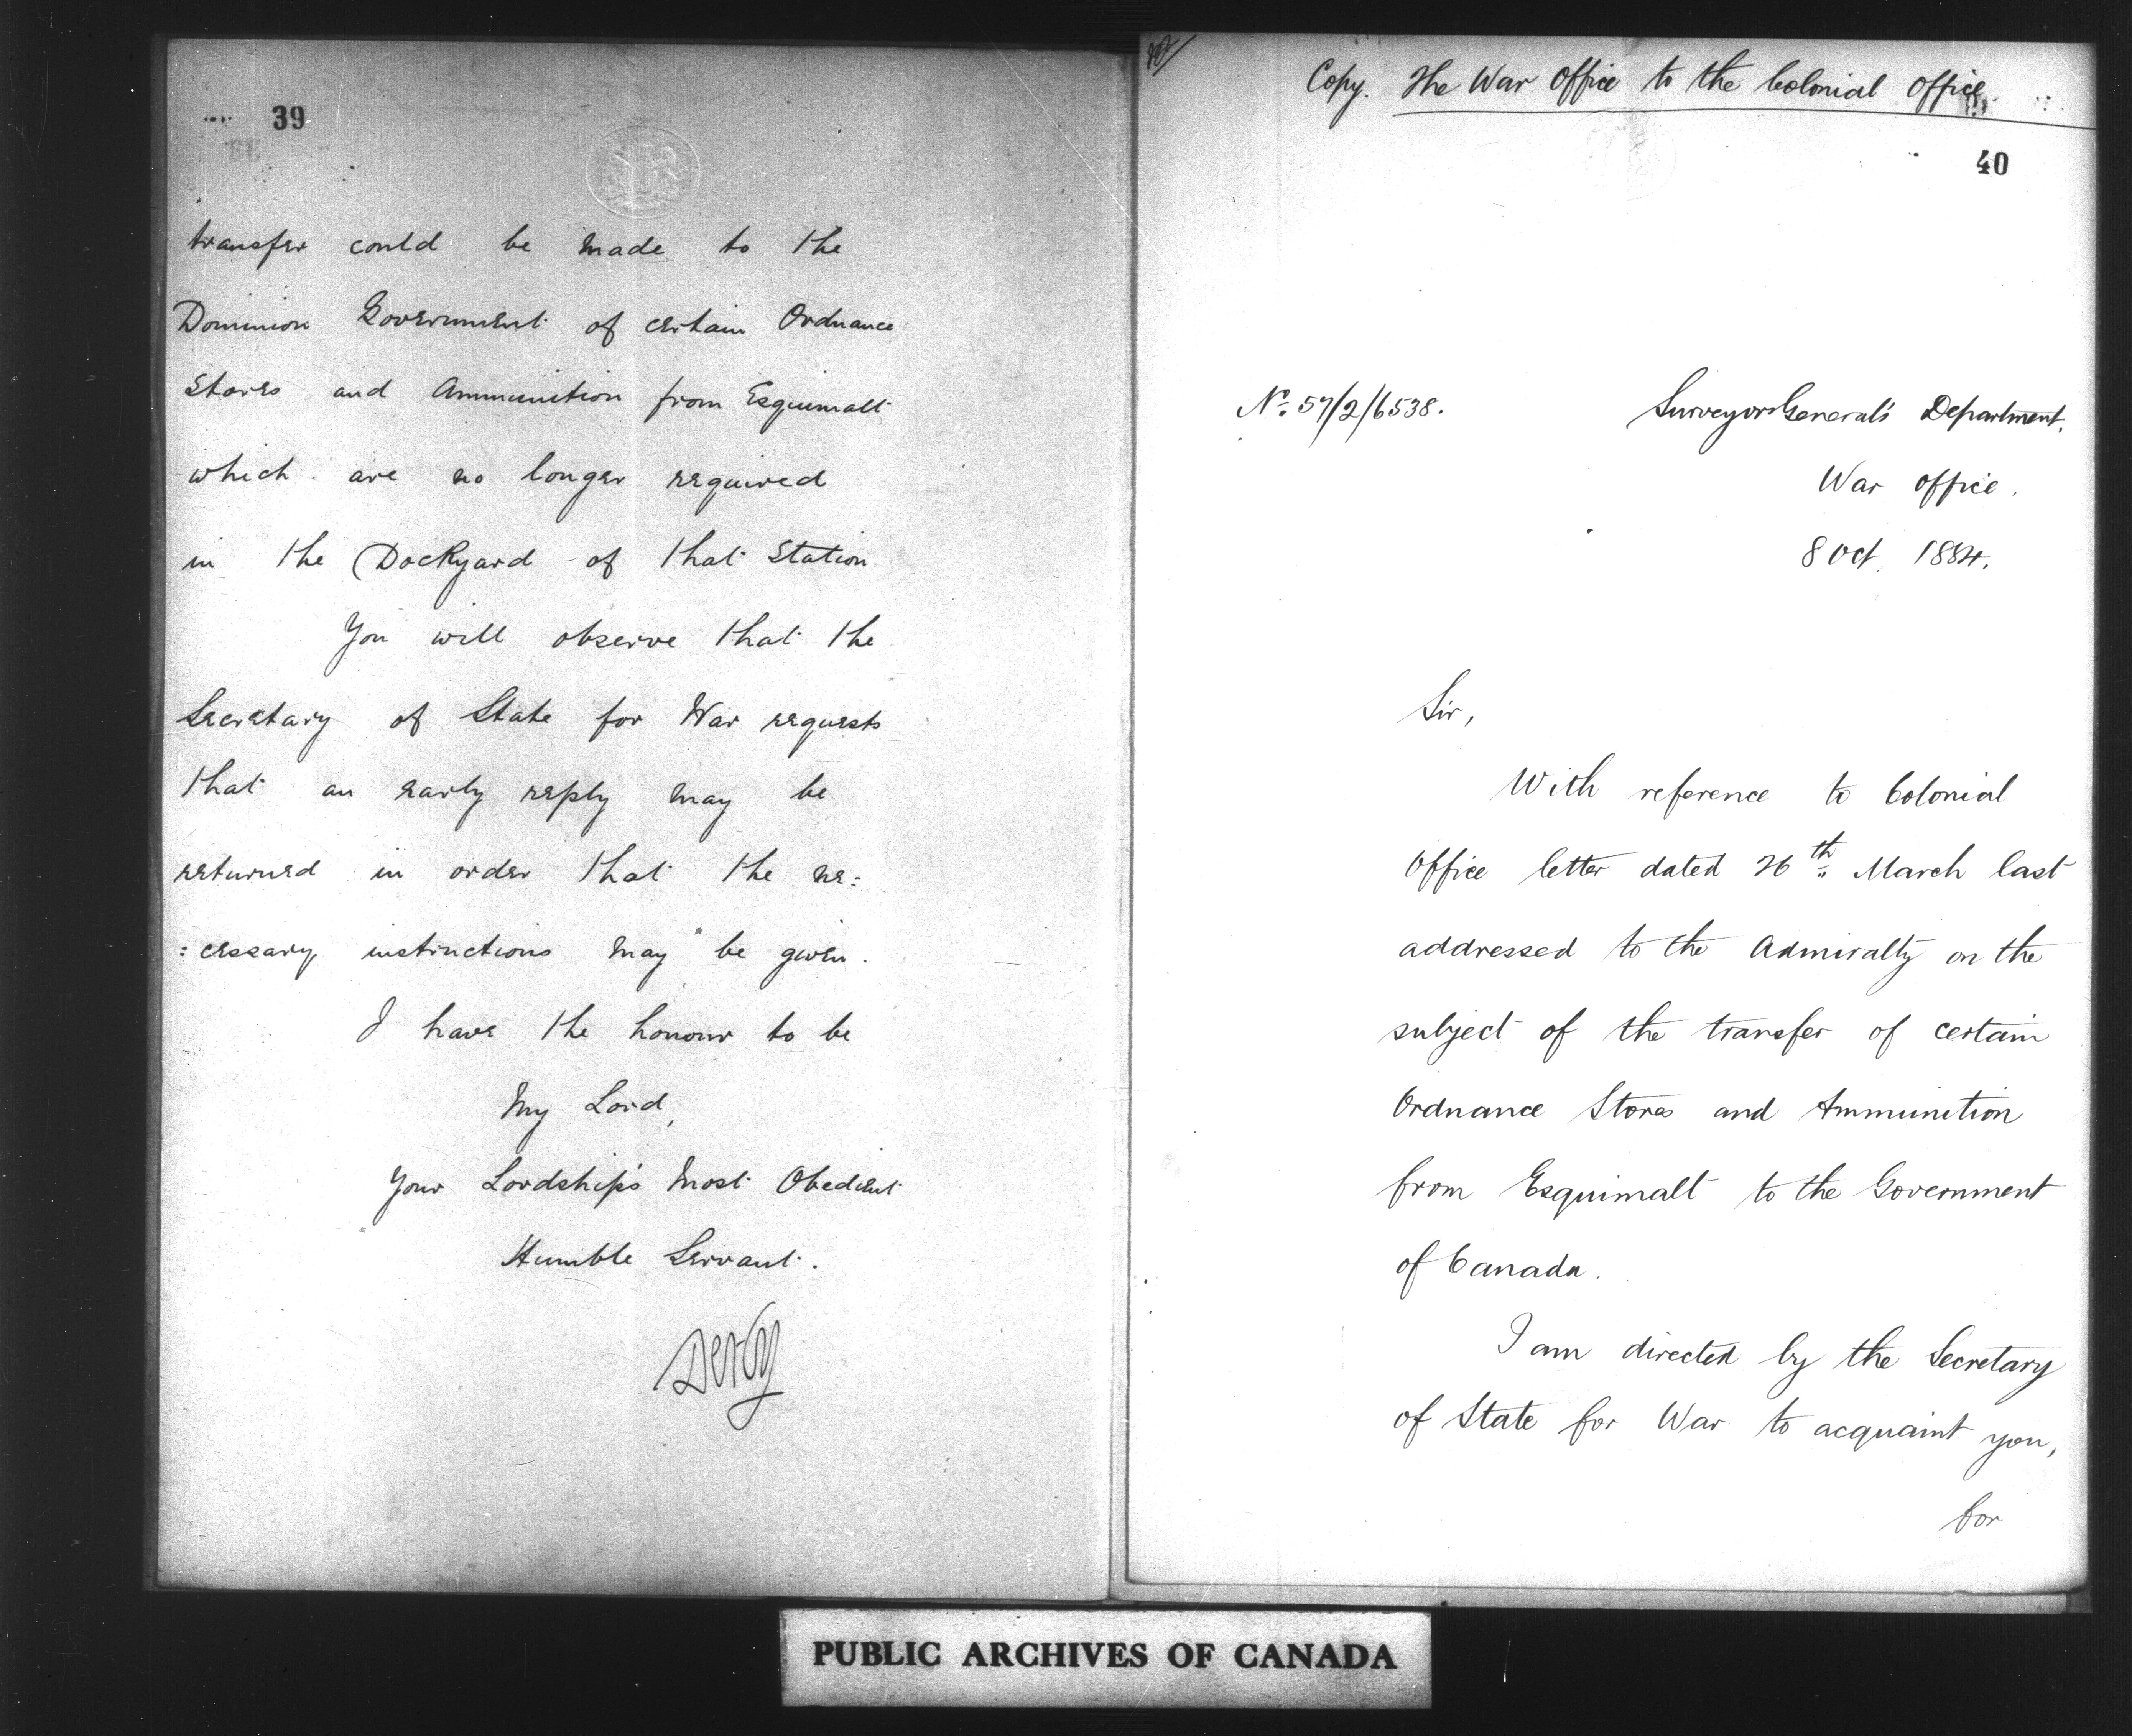 39
transfer could be made to the
Dominion Government of certain Ordnance
Stores and Ammunition from Esquimalt
which are no longer required
in the Dockyard of that Station
You will observe that the
Secretary of State for War requests
that an early reply may be
returned in order that the ne:
:cessary instructions may be given.
I have the honour to be
My Lord,
Your Lordship's Most Obedient
Humble Servant.
Derby
Copy. The War Office to the Colonial Office
40
No. 57/2/6538.
Surveyor General's Department.
War Office.
8 Oct. 1884.
Sir,
With reference to Colonial
Office letter dated 26th March last
addressed to the Admiralty on the
subject of the transfer of certain
Ordnance Stores and Ammunition
from Esquimalt to the Government
of Canada.
I am directed by the Secretary
of State for War to acquaint you,
for
PUBLIC ARCHIVES OF CANADA